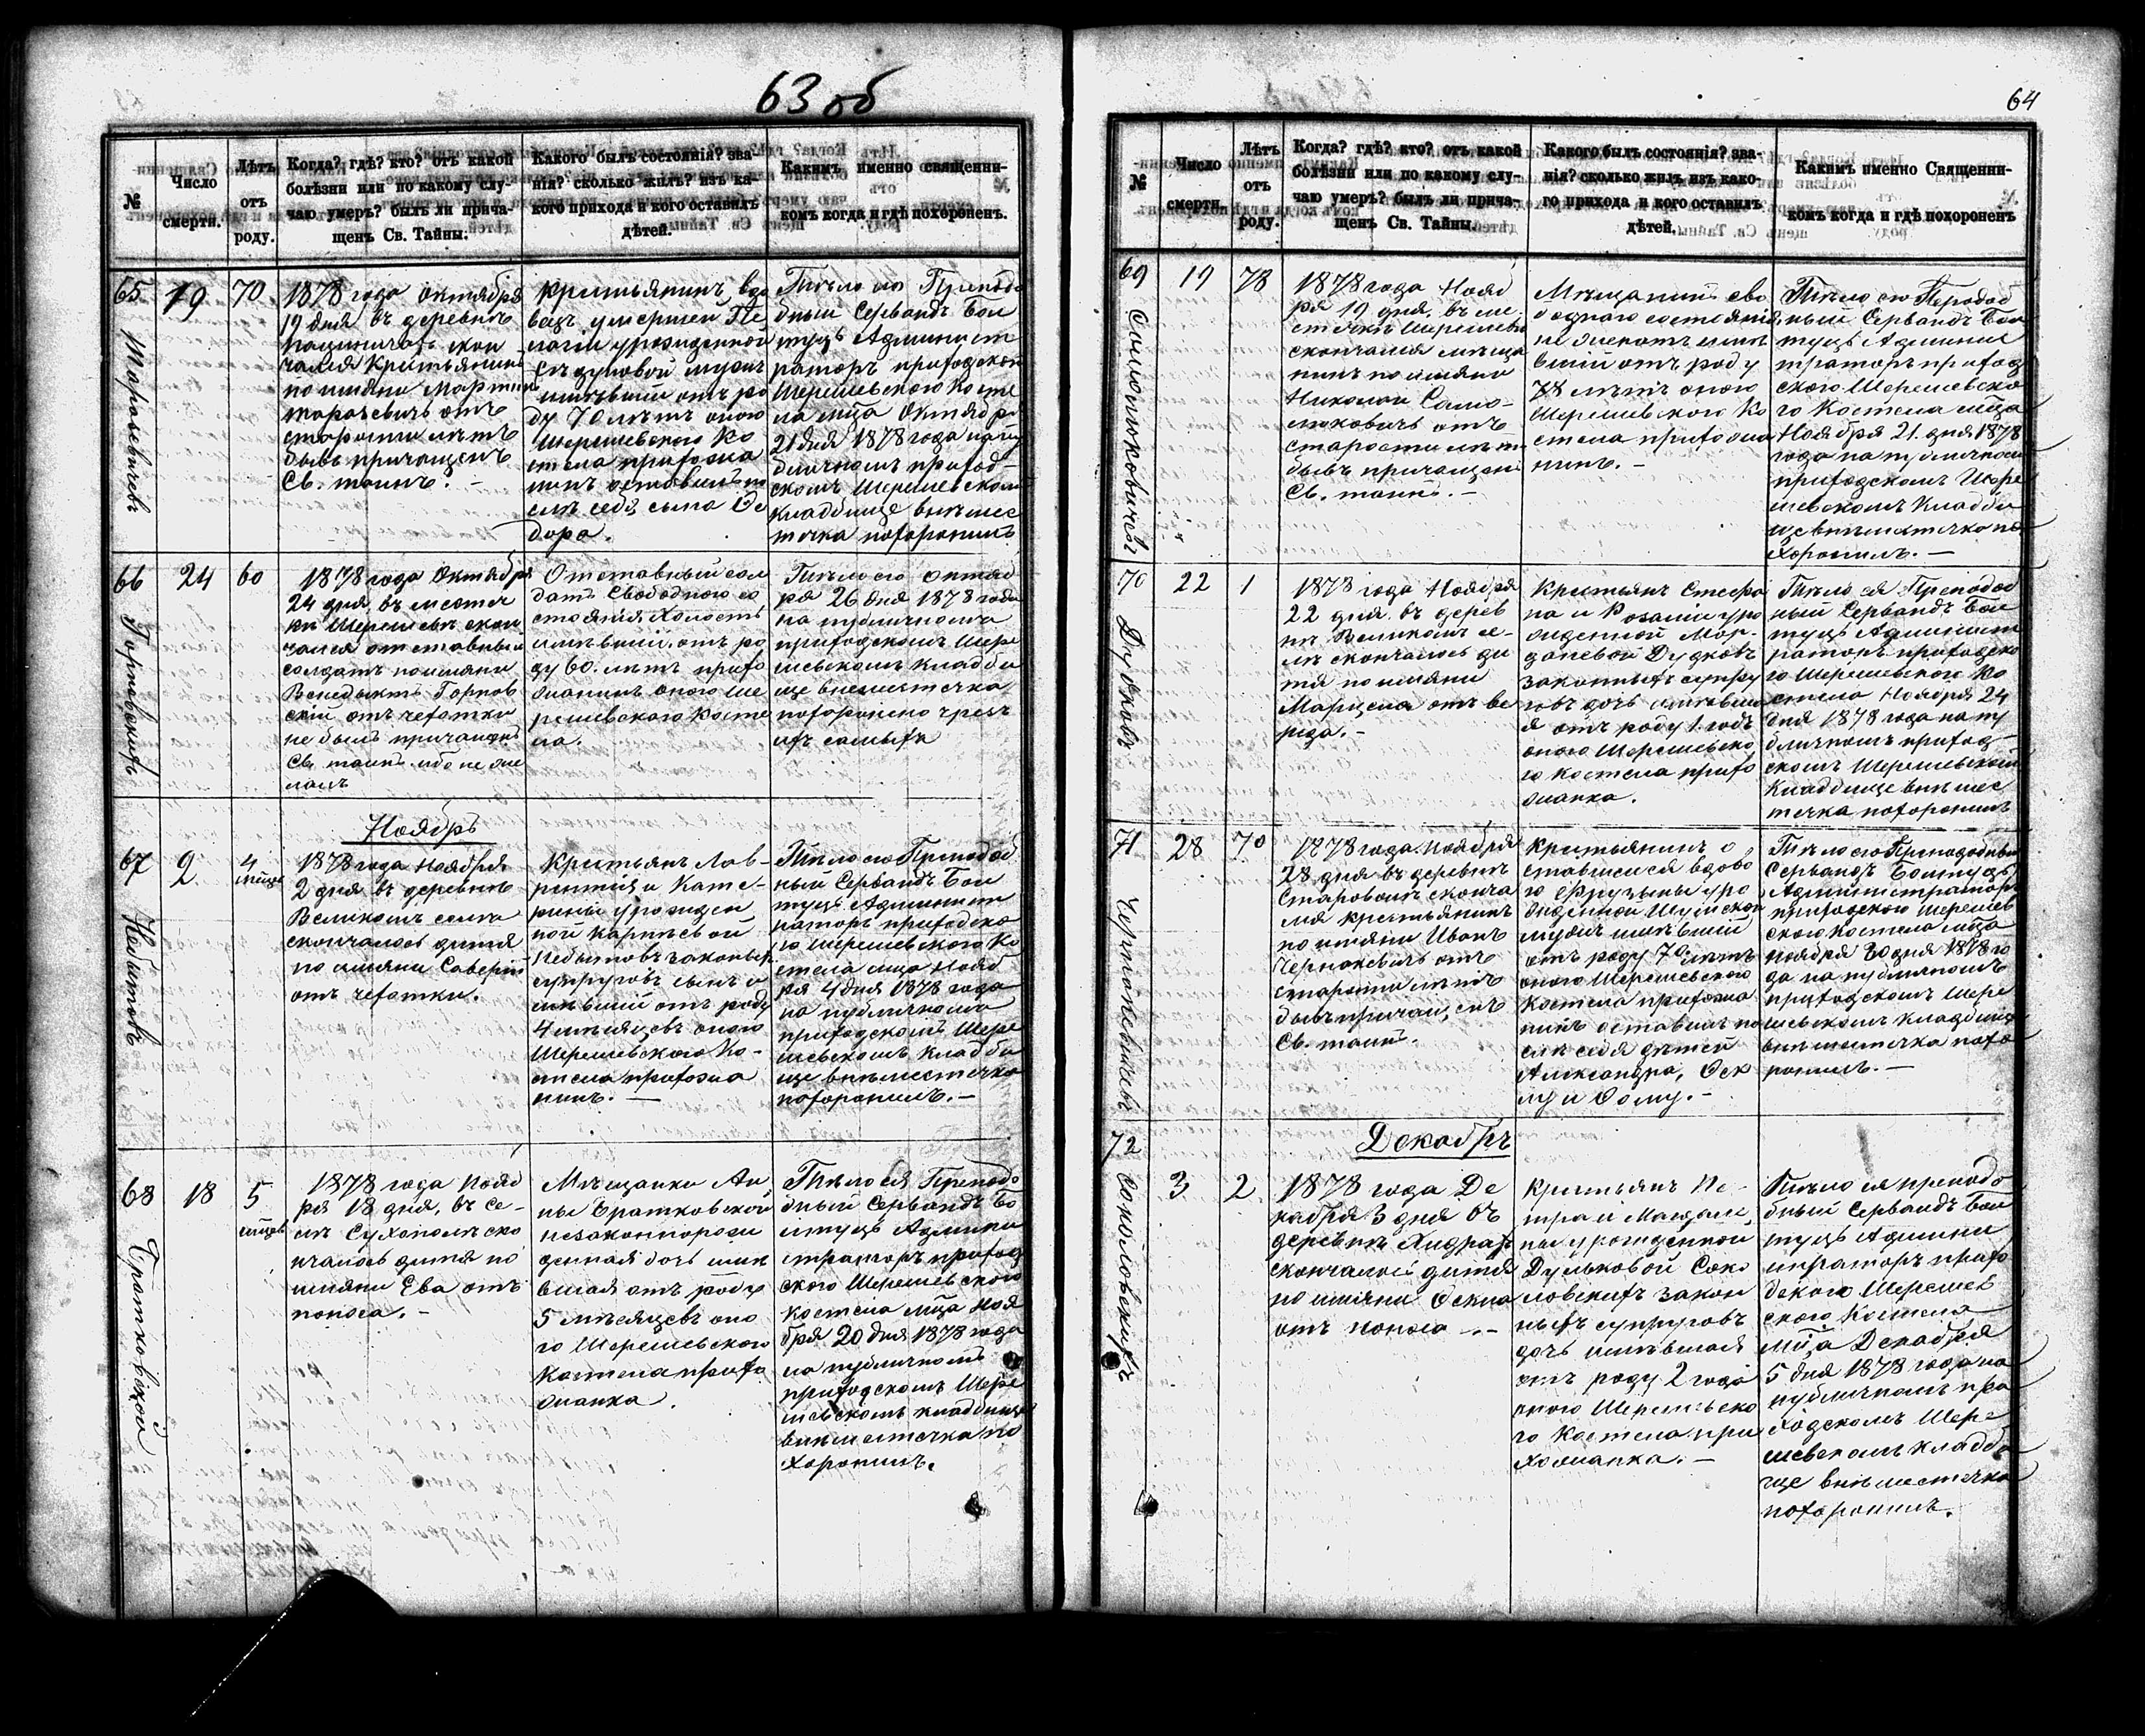 63 об
№
Число
смерти.
Лѣтъ
отъ
роду.
Когда? гдѣ? кто? отъ какой
болѣзни или по какому слу-
чаю умеръ? былъ ли прича-
щенъ Св. Тайны.
Какого былъ состоянія? зва-
нія? сколько жилъ? изъ ка-
кого прихода и кого оставилъ
дѣтей.
Какимъ именно священни-
комъ когда и гдѣ похороненъ.
65
19
70
1878 года Октября
19 дня въ деревнѣ
скон
чался Крестьянинъ
по имяни Мартинъ
отъ
старости лѣтъ
бывъ причащенъ
Св. таинъ. –
Крестьянинъ вдо
вецъ умершей Пе
лагіи урожденной
мужъ
имѣвшій отъ ро
ду 70 лѣтъ оного
Шерешевского Ко
стела прихожа
нинъ оставилъ по
слѣ себя сына
Тѣло его Преподо
бный Сервандъ Бол
туць Админист
раторъ приходского
Шерешевского Косте
ла мца Октября
21 дня 1878 года на пу
бличномъ приход-
скомъ Шерешевскомъ
кладбище внѣ мес
течка похоронилъ
66
Горновскихъ
24
60
1878 года Октября
24 дня въ местеч
кѣ Шерешевѣ скон
чался отставный
солдатъ по имяни
Венедыктъ Горнов
скій отъ чехотки
не былъ причащенъ
Св. таинъ ибо не же
лалъ
Отставный сол
датъ Свободного со
стоянія Холостъ
имѣвшій отъ ро
ду 60 лѣтъ прихо
жанинъ оного Ше
решевского косте
ла.
Тѣло его октяб
ря 26 дня 1878 года
на публичномъ
приходскомъ Шере
шевскомъ кладби
ще внеместечка
похоронено чрезъ
ихъ самыхъ
Ноябрь
67
Небытовъ
2
4
мѣсяц
1878 года Ноября
2 дня въ деревнѣ
Великомъ селѣ
скончалось дитя
по имяни
отъ чехотки.
Крестьянъ Лав-
рентія и Кате-
рины урожден
ной Карпѣевой
Небытовъ законныхъ
супруговъ сынъ и
мѣвшій отъ роду
4 мѣсяцевъ оного
Шерешевского Ко-
стела прихожа
нинъ. —
Тѣло его Преподоб
ный Сервандъ Бол
туць Админист
раторъ приходско
го Шерешевского Ко
стела мца Нояб
ря 4 дня 1878 года
на публичномъ
приходскомъ Шере
шевскомъ кладби
ще внѣместечка
похоронилъ. –
68
Братковской
18
5
мѣсяц
1878 года Нояб
ря 18 дня, въ се-
лѣ Сухополѣ ско
нчалось дитя по
имяни Ева отъ
поноса. –
Мѣщанки Ан
ны Братковской
незаконнорож
денная дочь имѣ
вшая отъ роду
5 мѣсяцевъ оно
го Шерешевского
Костела прихо
жанка.
Тѣло ея Преподо
бный Сервандъ Бо
лтуць Админи
страторъ приход
ского Шерешевского
Костела мца Ноя
бря 20 дня 1878 года
на публичномъ
приходскомъ Шере
шевскомъ кладбище
внѣместечка по
хоронилъ.
64
№
Число
смерти.
Лѣтъ
отъ
роду.
Когда? гдѣ? кто? отъ какой
болѣзни или по какому слу-
чаю умеръ? былъ ли прича-
щенъ Св. Тайны.
Какого былъ состоянія? зва-
нія? сколько жилъ изъ како-
го прихода и кого оставилъ
дѣтей.
Какимъ именно Священни-
комъ когда и гдѣ похороненъ
69
Самолюковичевъ
19
78
1878 года Нояб
ря 19 дня, въ ме
стечкѣ Шерешевѣ
скончался мѣща
нинъ по имяни
Николай Само-
люковичъ отъ
старости лѣтъ
бывъ причащенъ
Св. таинъ. –
Мѣщанинъ сво
боднаго состоянія
не женатъ имѣ
вшій отъ роду
78 лѣтъ оного
Шерешевского Ко
стела прихожа
нинъ. –
Тѣло его Преподоб
ный Сервандъ Бол
туць Админис
траторъ приход
ского Шерешевско
го Костела мца
Ноября 21 дня 1878
года на публичномъ
приходскомъ Шере
шевскомъ Кладби
ще внѣместечка по
хоронилъ. —
70
Дудковъ
22
1
1878 года Ноября
22 дня въ дерев
нѣ Великомъ се-
лѣ скончалось ди
тя по имяни
Марцела отъ ве
реда. –
Крестьянъ Стефа
на и Розаліи уро
жденной Мор-
Дудковъ
законныхъ супру
говъ дочь имѣвша
я отъ роду 1 годъ
оного Шерешевско
го костела прихо
жанка.
Тѣло ея Преподоб
ный Сервандъ Бол
туць Админист
раторъ приходско
го Шерешевского Ко
стела Ноября 24
дня 1878 года на пу
бличномъ приход-
скомъ Шерешевскомъ
Кладбище внѣ мес
течка похоронилъ
71
28
70
1878 года Ноября
28 дня въ деревнѣ
Староволѣ сконча
лся крестьянинъ
по имяни Иванъ
отъ
старости лѣтъ
бывъ причащенъ
Св. таинъ.
Крестьянинъ о
ставшейся вдово
ю Фрузыны уро
жденной Шуйской
мужъ имѣвшій
отъ роду 70 лѣтъ
оного Шерешевского
Костела прихожа
нинъ оставилъ по
слѣ себя дѣтей
Александра,
Тѣло его Преподобный
Сервандъ Болтуць
Администраторъ
приходского Шерешев
ского Костела мца
Ноября 30 дня 1878 го
да на публичномъ
приходскомъ Шере
шевскомъ кладбище
внѣ местечка похо
ронилъ. —
Декабрь
72
Соколовскихъ
3
2
1878 года Де
кабря 3 дня въ
деревнѣ
скончалось дитя
по имяни
отъ поноса –
Крестьянъ Пе-
тра и Магдале
ны урожденной
Дульковой Соко
ловскихъ закон
ныхъ супруговъ
дочь имѣвшая
отъ роду 2 года
оного Шерешевско
го Костела при
хожанка. –
Тѣло ея преподо
бный Сервандъ Бол
туць Админи
страторъ прихо
дского Шерешев
ского Костела
мца Декабря
5 дня 1878 года на
публичномъ при
ходскомъ Шере
шевскомъ кладби
ще внѣ местечка
похоронилъ.